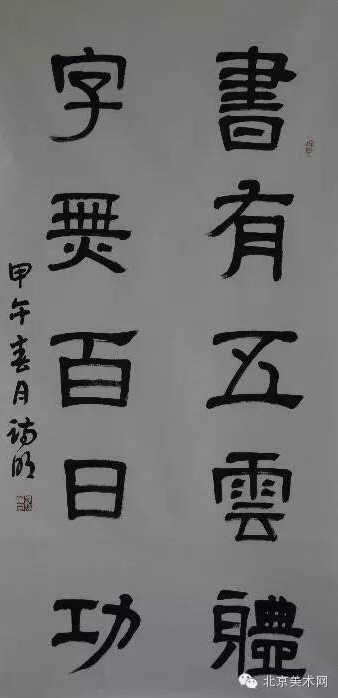 書有五雲體
字無百日功
甲午春月访明
北京美术网